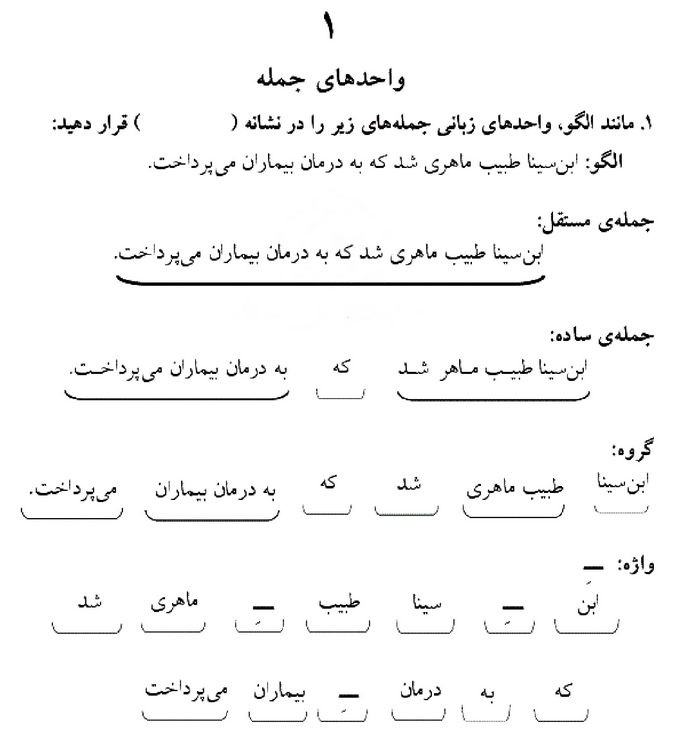 ۱
واحدهای جمله
۱. مانند الگو، واحدهای زبانی جمله‌های زیر را در نشانه (   ) قرار دهید:
الگو: ابن‌سینا طبیب ماهری شد که به درمان بیماران می‌پرداخت.
جمله‌ی مستقل:
ابن‌سینا طبیب ماهری شد که به درمان بیماران می‌پرداخت.
جمله‌ی ساده:
ابن‌سینا طبیـب مـاهر شـد که به درمان بیماران می‌پرداخـت.
گروه:
ابن‌سینا طبیب ماهری شد که به درمان بیماران می‌پرداخت.
واژه: ـِ
ابن ـِ سینا طبیب ـِ ماهری شد
که به درمان ـِ بیماران می‌پرداخت